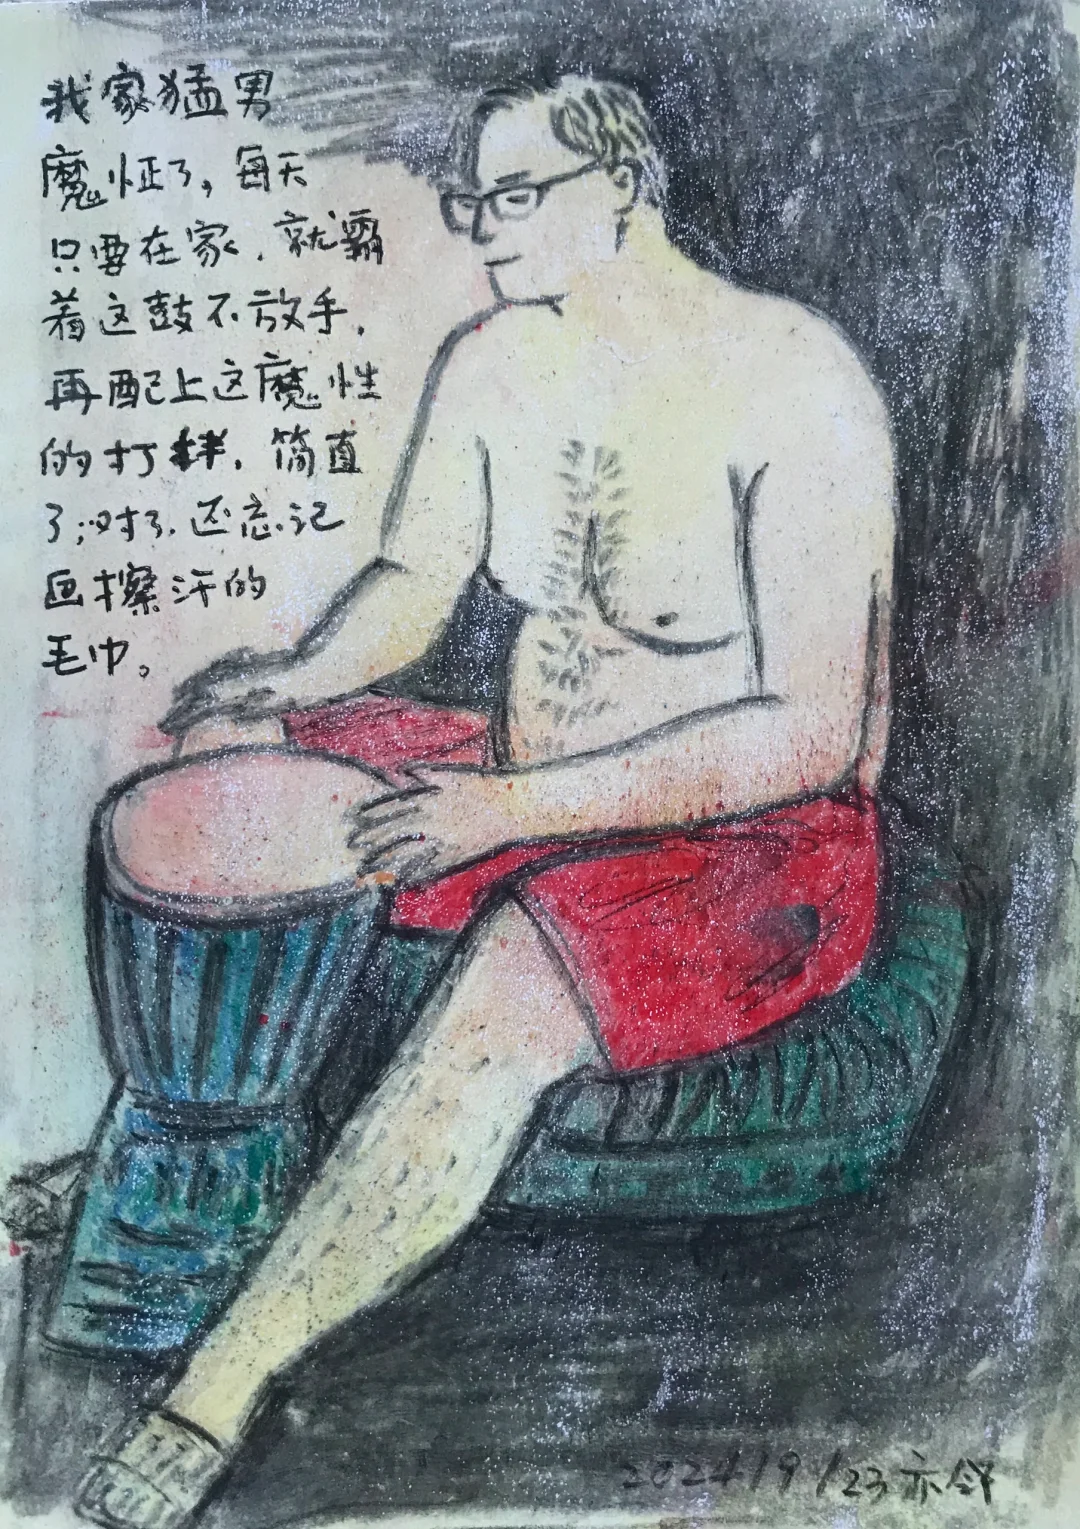 我家猛男
魔怔了，每天
只要在家，就霸
着这鼓不放手，
再配上这魔性
的打拌，简直
了；对了，还忘记
画擦汗的
毛巾。
2024/9/23亦邻